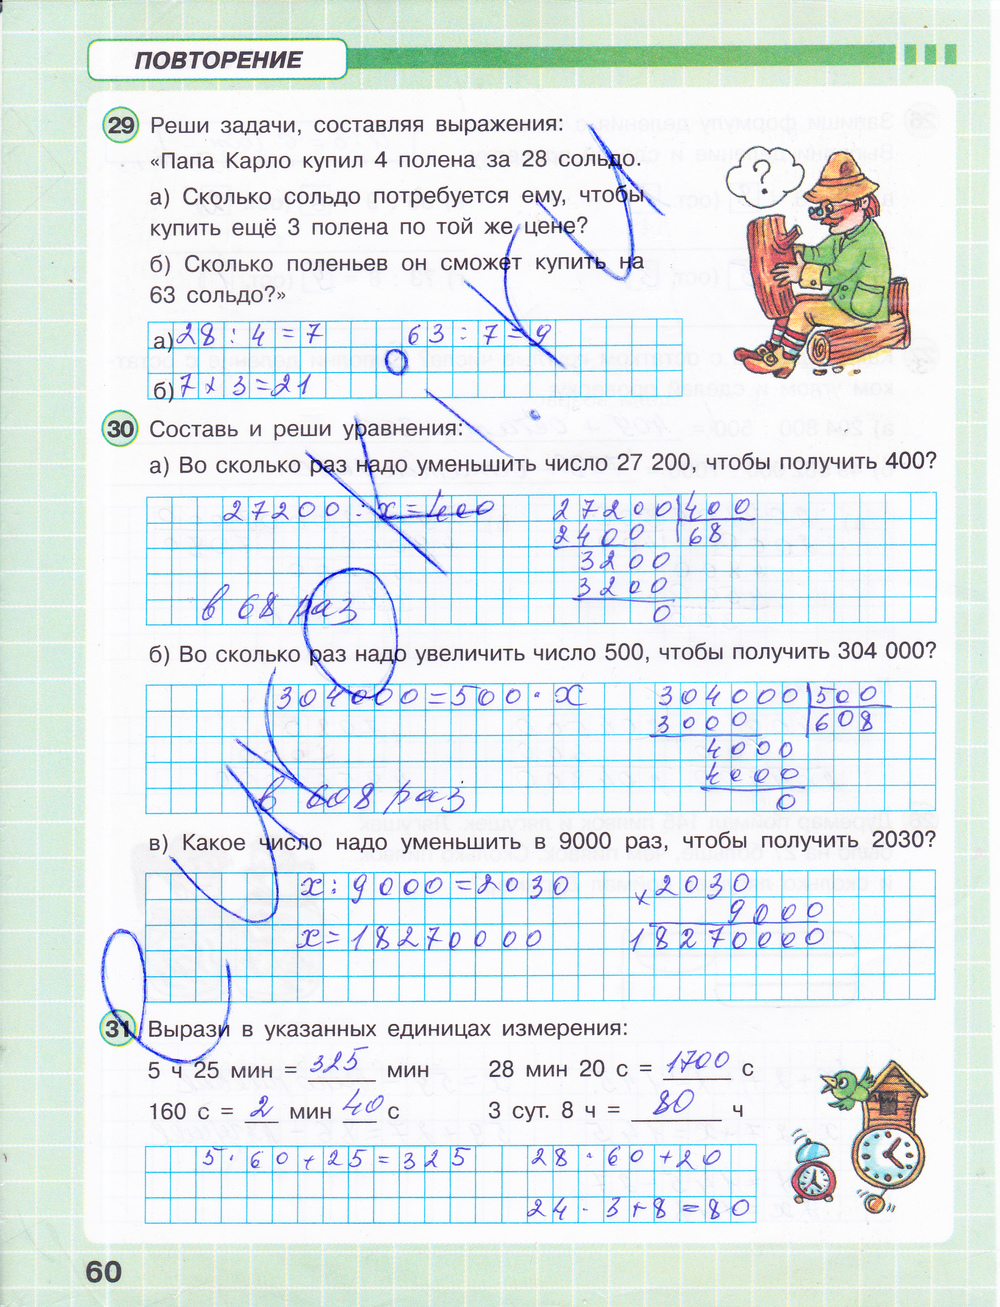 ПОВТОРЕНИЕ
29 Реши задачи, составляя выражения:
«Папа Карло купил 4 полена за 28 сольдо.
а) Сколько сольдо потребуется ему, чтобы
купить ещё 3 полена по той же цене?
б) Сколько поленьев он сможет купить на
63 сольдо?»
?
а) 28 : 4 = 7 63 : 7 = 9
б) 7 × 3 = 21
30 Составь и реши уравнения:
а) Во сколько раз надо уменьшить число 27 200, чтобы получить 400?
27200 : x = 400 27200 400
2400 68
3200
3200
в 68 раз 0
б) Во сколько раз надо увеличить число 500, чтобы получить 304 000?
304000 = 500 · x 304000 500
3000 608
4000
в 608 раз 4000
0
в) Какое число надо уменьшить в 9000 раз, чтобы получить 2030?
x : 9000 = 2030 × 2030
9000
x = 18270000 18270000
31 Вырази в указанных единицах измерения:
5 ч 25 мин = 325 мин 28 мин 20 с = 1700 с
160 с = 2 мин 40 с 3 сут. 8 ч = 80 ч
5 · 60 + 25 = 325 28 · 60 + 20
24 · 3 + 8 = 80
60